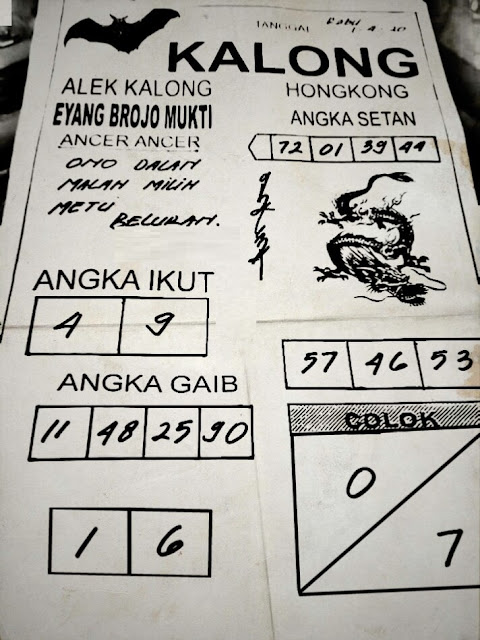 TANGGAL Rabu
1-4-20
KALONG
ALEK KALONG
EYANG BROJO MUKTI
ANCER ANCER
ONO DALAN
MALAH MILIH
METU
BELURAN.
HONGKONG
ANGKA SETAN
72 01 39 44
ANGKA IKUT
4 9
ANGKA GAIB
11 48 25 90
1 6
57 46 53
COLOK
0
7